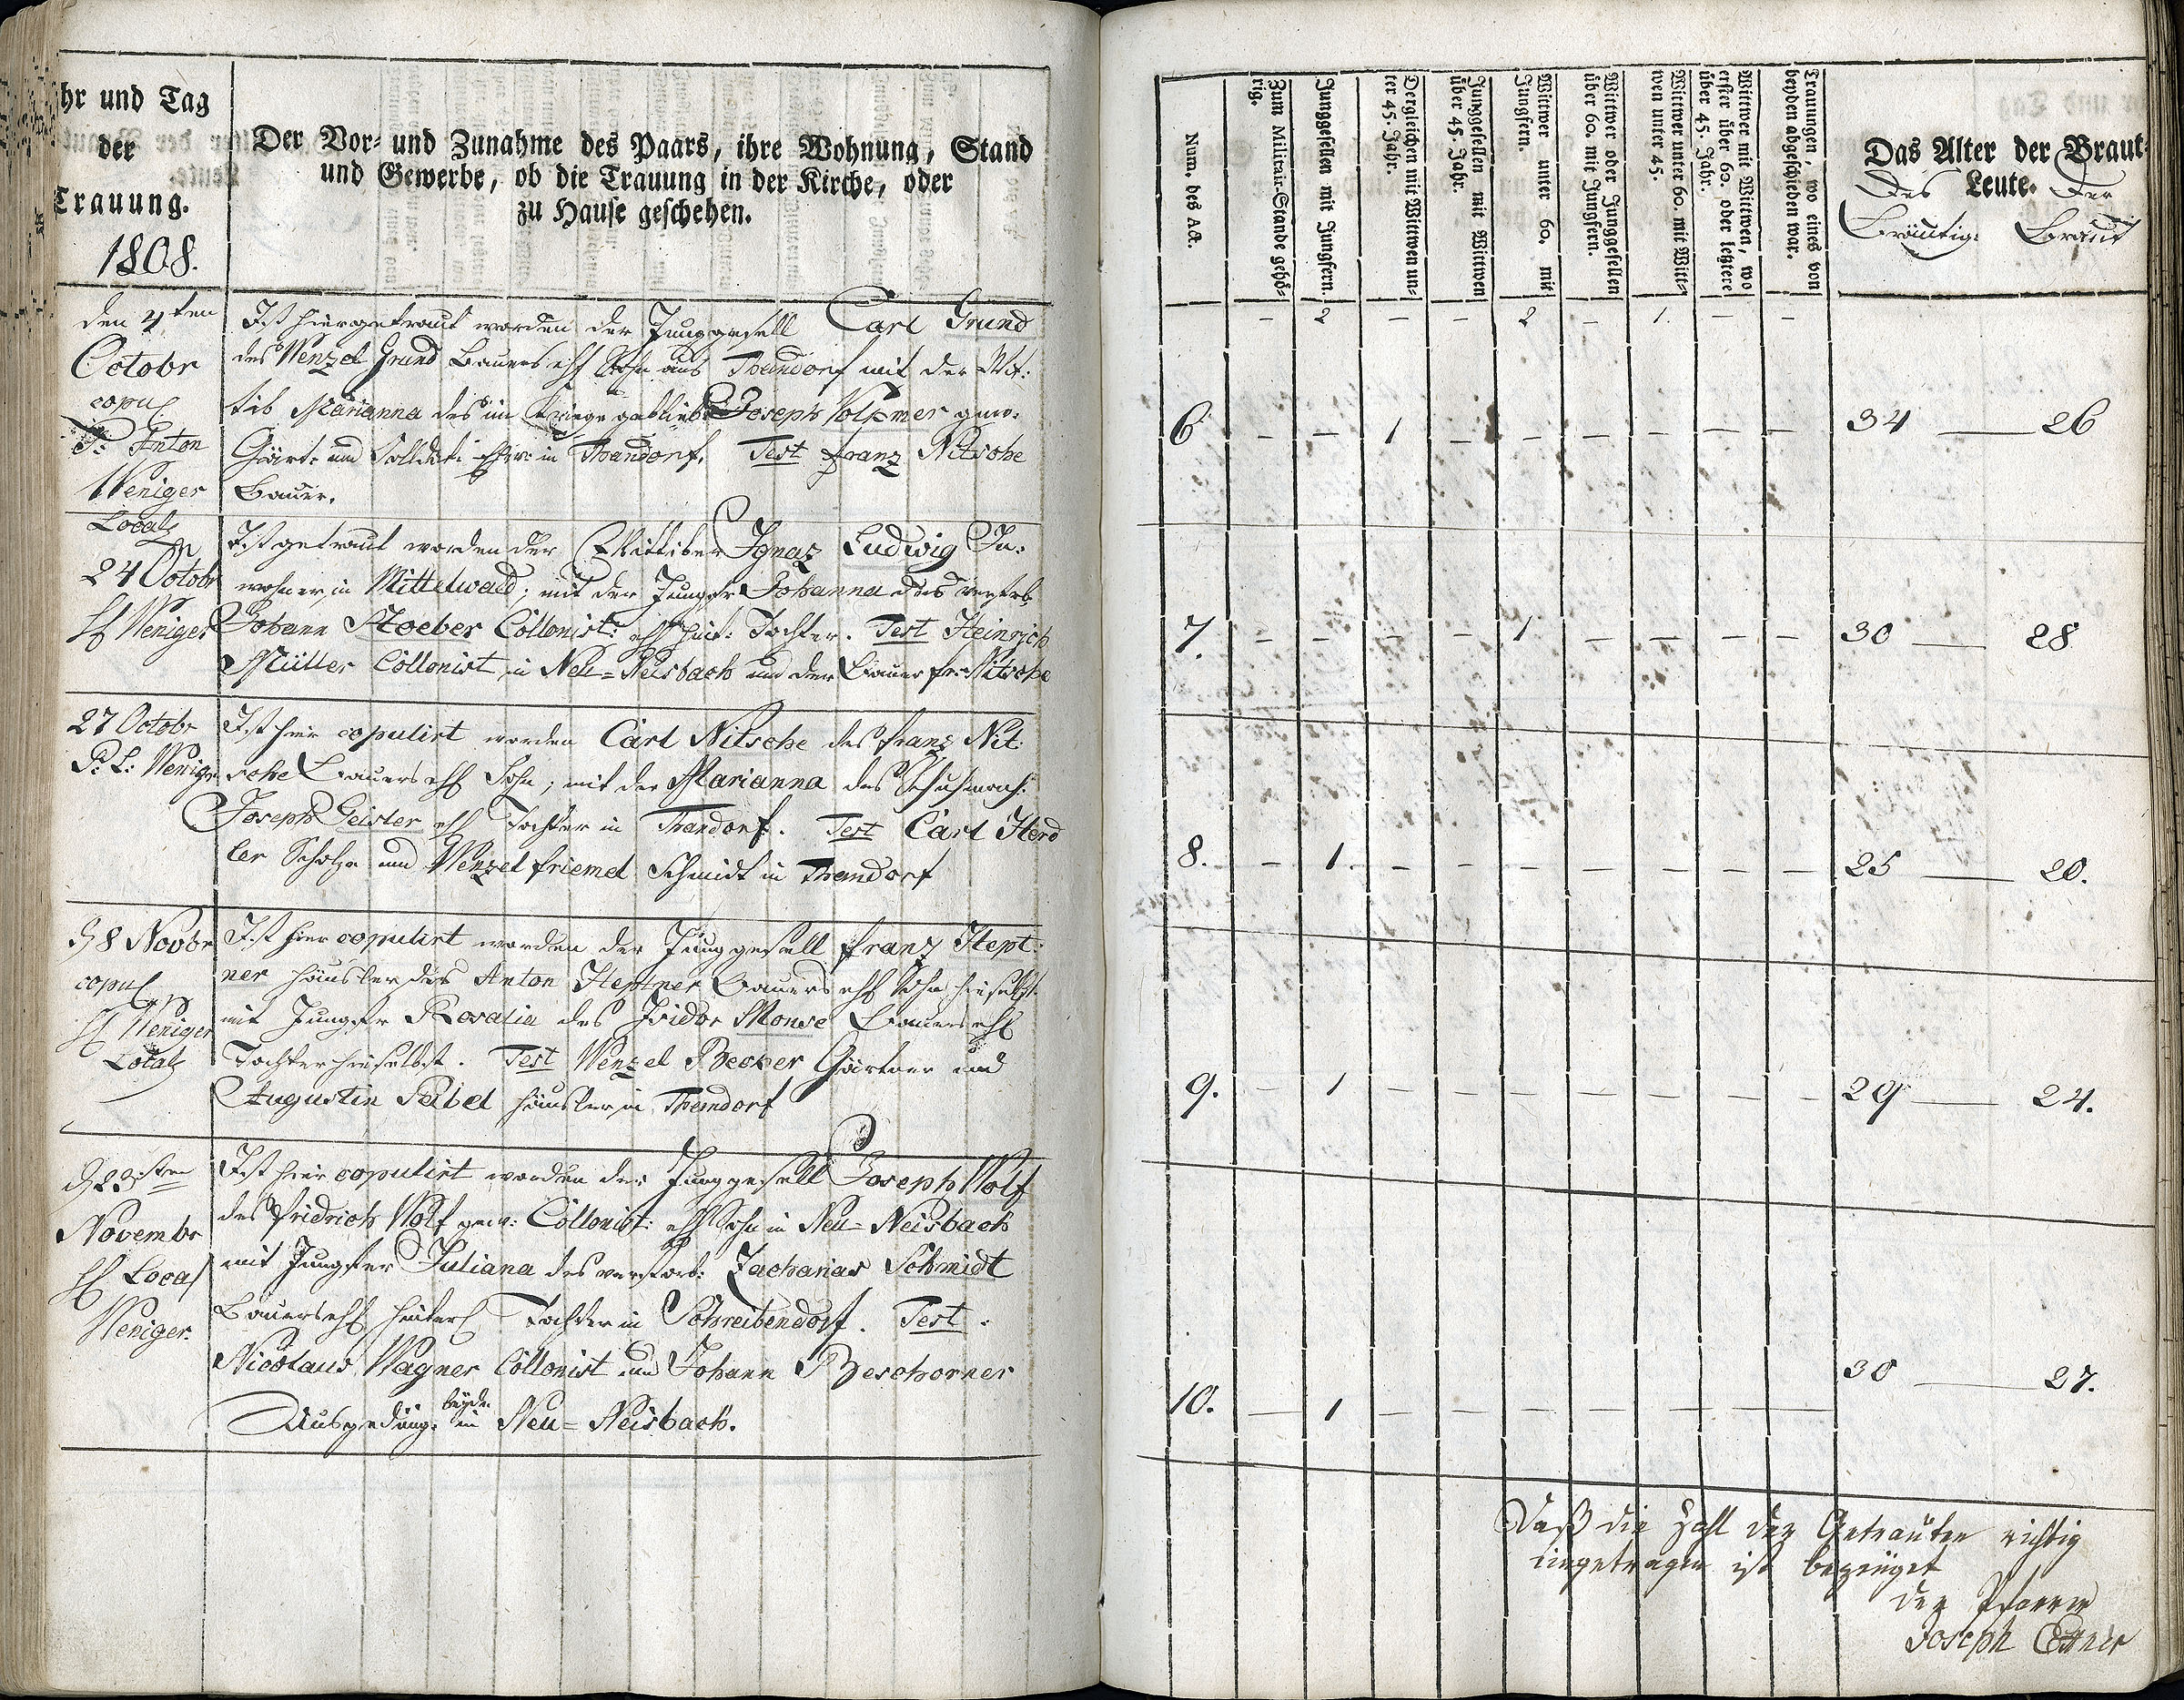 hr und Tag
der
Trauung.
1808.
Der Vor- und Zunahme des Paars, ihre Wohnung, Stand
und Gewerbe, ob die Trauung in der Kirche, oder
zu Hause geschehen.
den 4ten
Octobr
copul.
P: Anton
Weniger
Local
Ist hier getraut worden der Junggesell Carl Grund
des Wenzel Grund Bauers ehl Sohn aus Thandorf mit der Wit:
tib Marianna des im Kriege gebliebe Joseph Volkmer gew:
Gärt: und Solldat: in Thandorf. Test Franz Nitsche
Bauer.
24 Octobr
Weniger
Ist getraut worden der Wittiber Ignaz Ludwig In:
wohner in Mittelwald; mit der Jungfr Johanna des verstrb
Johann Stoeber Collonist: ehl hint: Tochter. Test Heinrich
Müller Collonist in Neu=Neisbach und der Bauer fr: Nitsche
27 Octobr
P: L: Wenigr
Ist hier copulirt worden Carl Nitsche des Franz Nit:
sche Bauers ehl Sohn; mit der Marianna des Schuhmach:
Joseph Geisler ehl Tochter in Thandorf. Test Carl Herd
ler Scholze und Wenzel Friemel Schmidt in Thandorf
8 Novbr
copul
Weniger
Local
Ist hier copulirt worden der Junggesell Franz Hept:
ner Häusler des Anton Heptner Bauers ehl Sohn hieselbst
mit Jungfer Rosalia des Isidor Monse Bauers ehl
Tochter hieselbst. Test Wenzel Becker Gärtner und
Augustin Häusler in Thandorf
23sten
Novembr
Local
Weniger.
Ist hier copulirt worden der Junggesell Joseph Wolf
des Fridrich Wolf gew: Collonist: ehl Sohn in Neu=Neisbach
mit Jungfer Juliana des verstorb: Zacharias Schmidt
Bauers ehl hinterl Tochter in Schreibendorf. Test.
Nicolaus Wagner Collonist und Johann Beschorner
Ausgeding: beyde in Neu=Neisbach.
Num. des Act.
Zum Militair-Stande gehö-
rig.
Junggesellen mit Jungfern.
Dergleichen mit Wittwen un-
ter 45. Jahr.
Junggesellen mit Wittwen
über 45. Jahr.
Wittwer unter 60. mit
Jungfern.
Wittwer oder Junggesellen
über 60. mit Jungfern.
Wittwer unter 60. mit Witt-
wen unter 45.
Wittwer mit Wittwen, wo
erster über 60. oder letztere
über 45. Jahr.
Trauungen, wo eines von
beyden abgeschieden war.
Das Alter der Braut-
Leute.
Des Der
Bräutig: Braut
– 2 – – 2 – 1. – –
6 – – 1 – – – – – – 34 — 26
7. – – – – 1 – – – – 30 — 28
8. – 1. – – – – – – – 25 — 20.
9. – 1 – – – – – – – 29 — 24.
10. – 1 – – – – – – – 30 — 27.
Daß die Zahl der Getrauten richtig
eingetragen ist bezeuget
der Pfarrer
Joseph